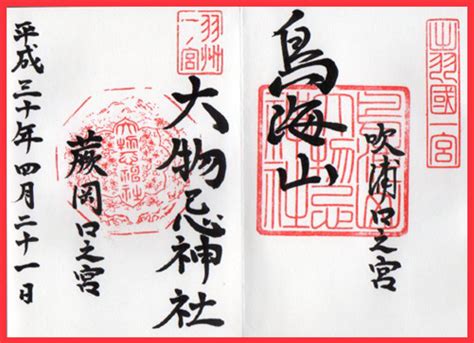 出羽國一宮
吹浦口之宮
鳥海山
羽州
一ノ宮
大物忌神社
蕨岡口之宮
平成三十年四月二十一日